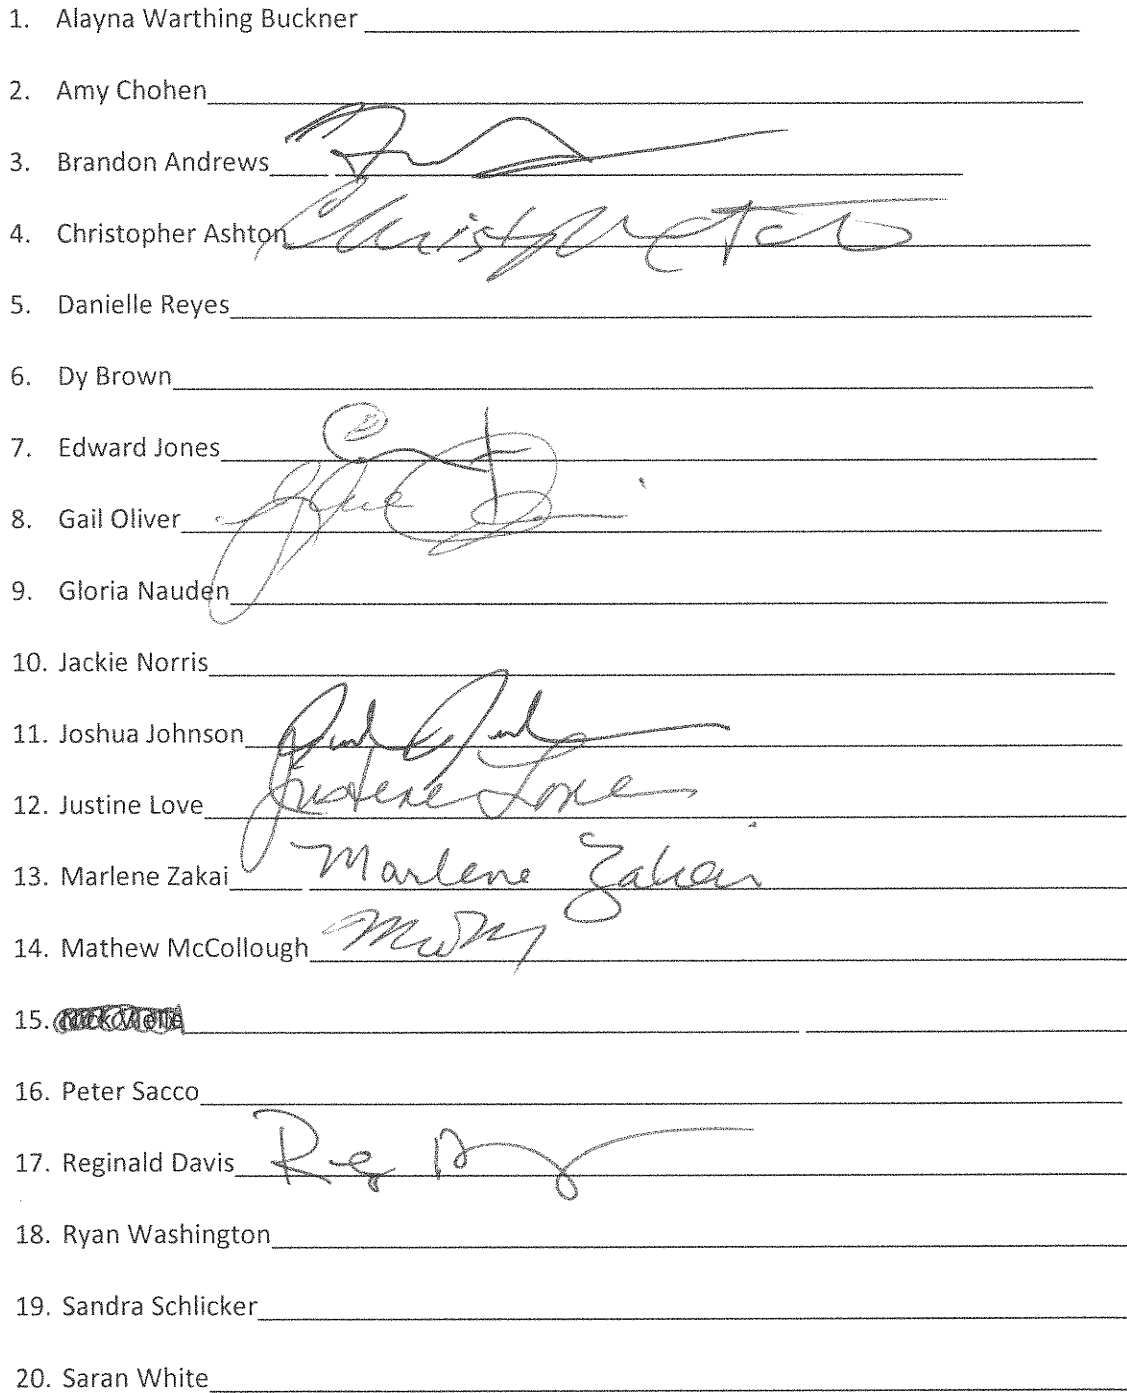 1. Alayna Warthing Buckner
2. Amy Chohen
3. Brandon Andrews
4. Christopher Ashton
5. Danielle Reyes
6. Dy Brown
7. Edward Jones
8. Gail Oliver
9. Gloria Nauden
10. Jackie Norris
11. Joshua Johnson
12. Justine Love Justine Love
13. Marlene Zakai Marlene Zakai
14. Mathew McCollough
15.
16. Peter Sacco
17. Reginald Davis Reg
18. Ryan Washington
19. Sandra Schlicker
20. Saran White